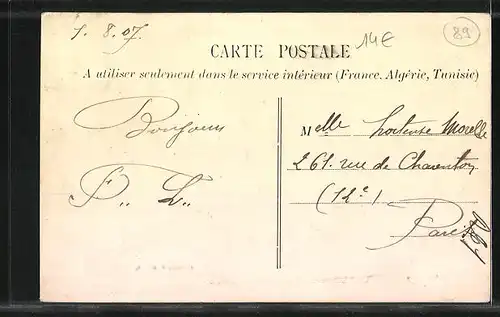 1. 8. 07.
14€
89
CARTE POSTALE
A utiliser seulement dans le service intérieur (France, Algérie, Tunisie)
Bonjour
P.. L..
Melle Hortense Morelle
261. rue de Charenton
(12e)
Paris